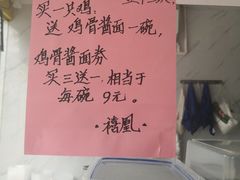 买一只鸡,
送 鸡骨酱面一碗,
鸡骨酱面券
买三送一,相当于
每碗 9元。
·禧凰